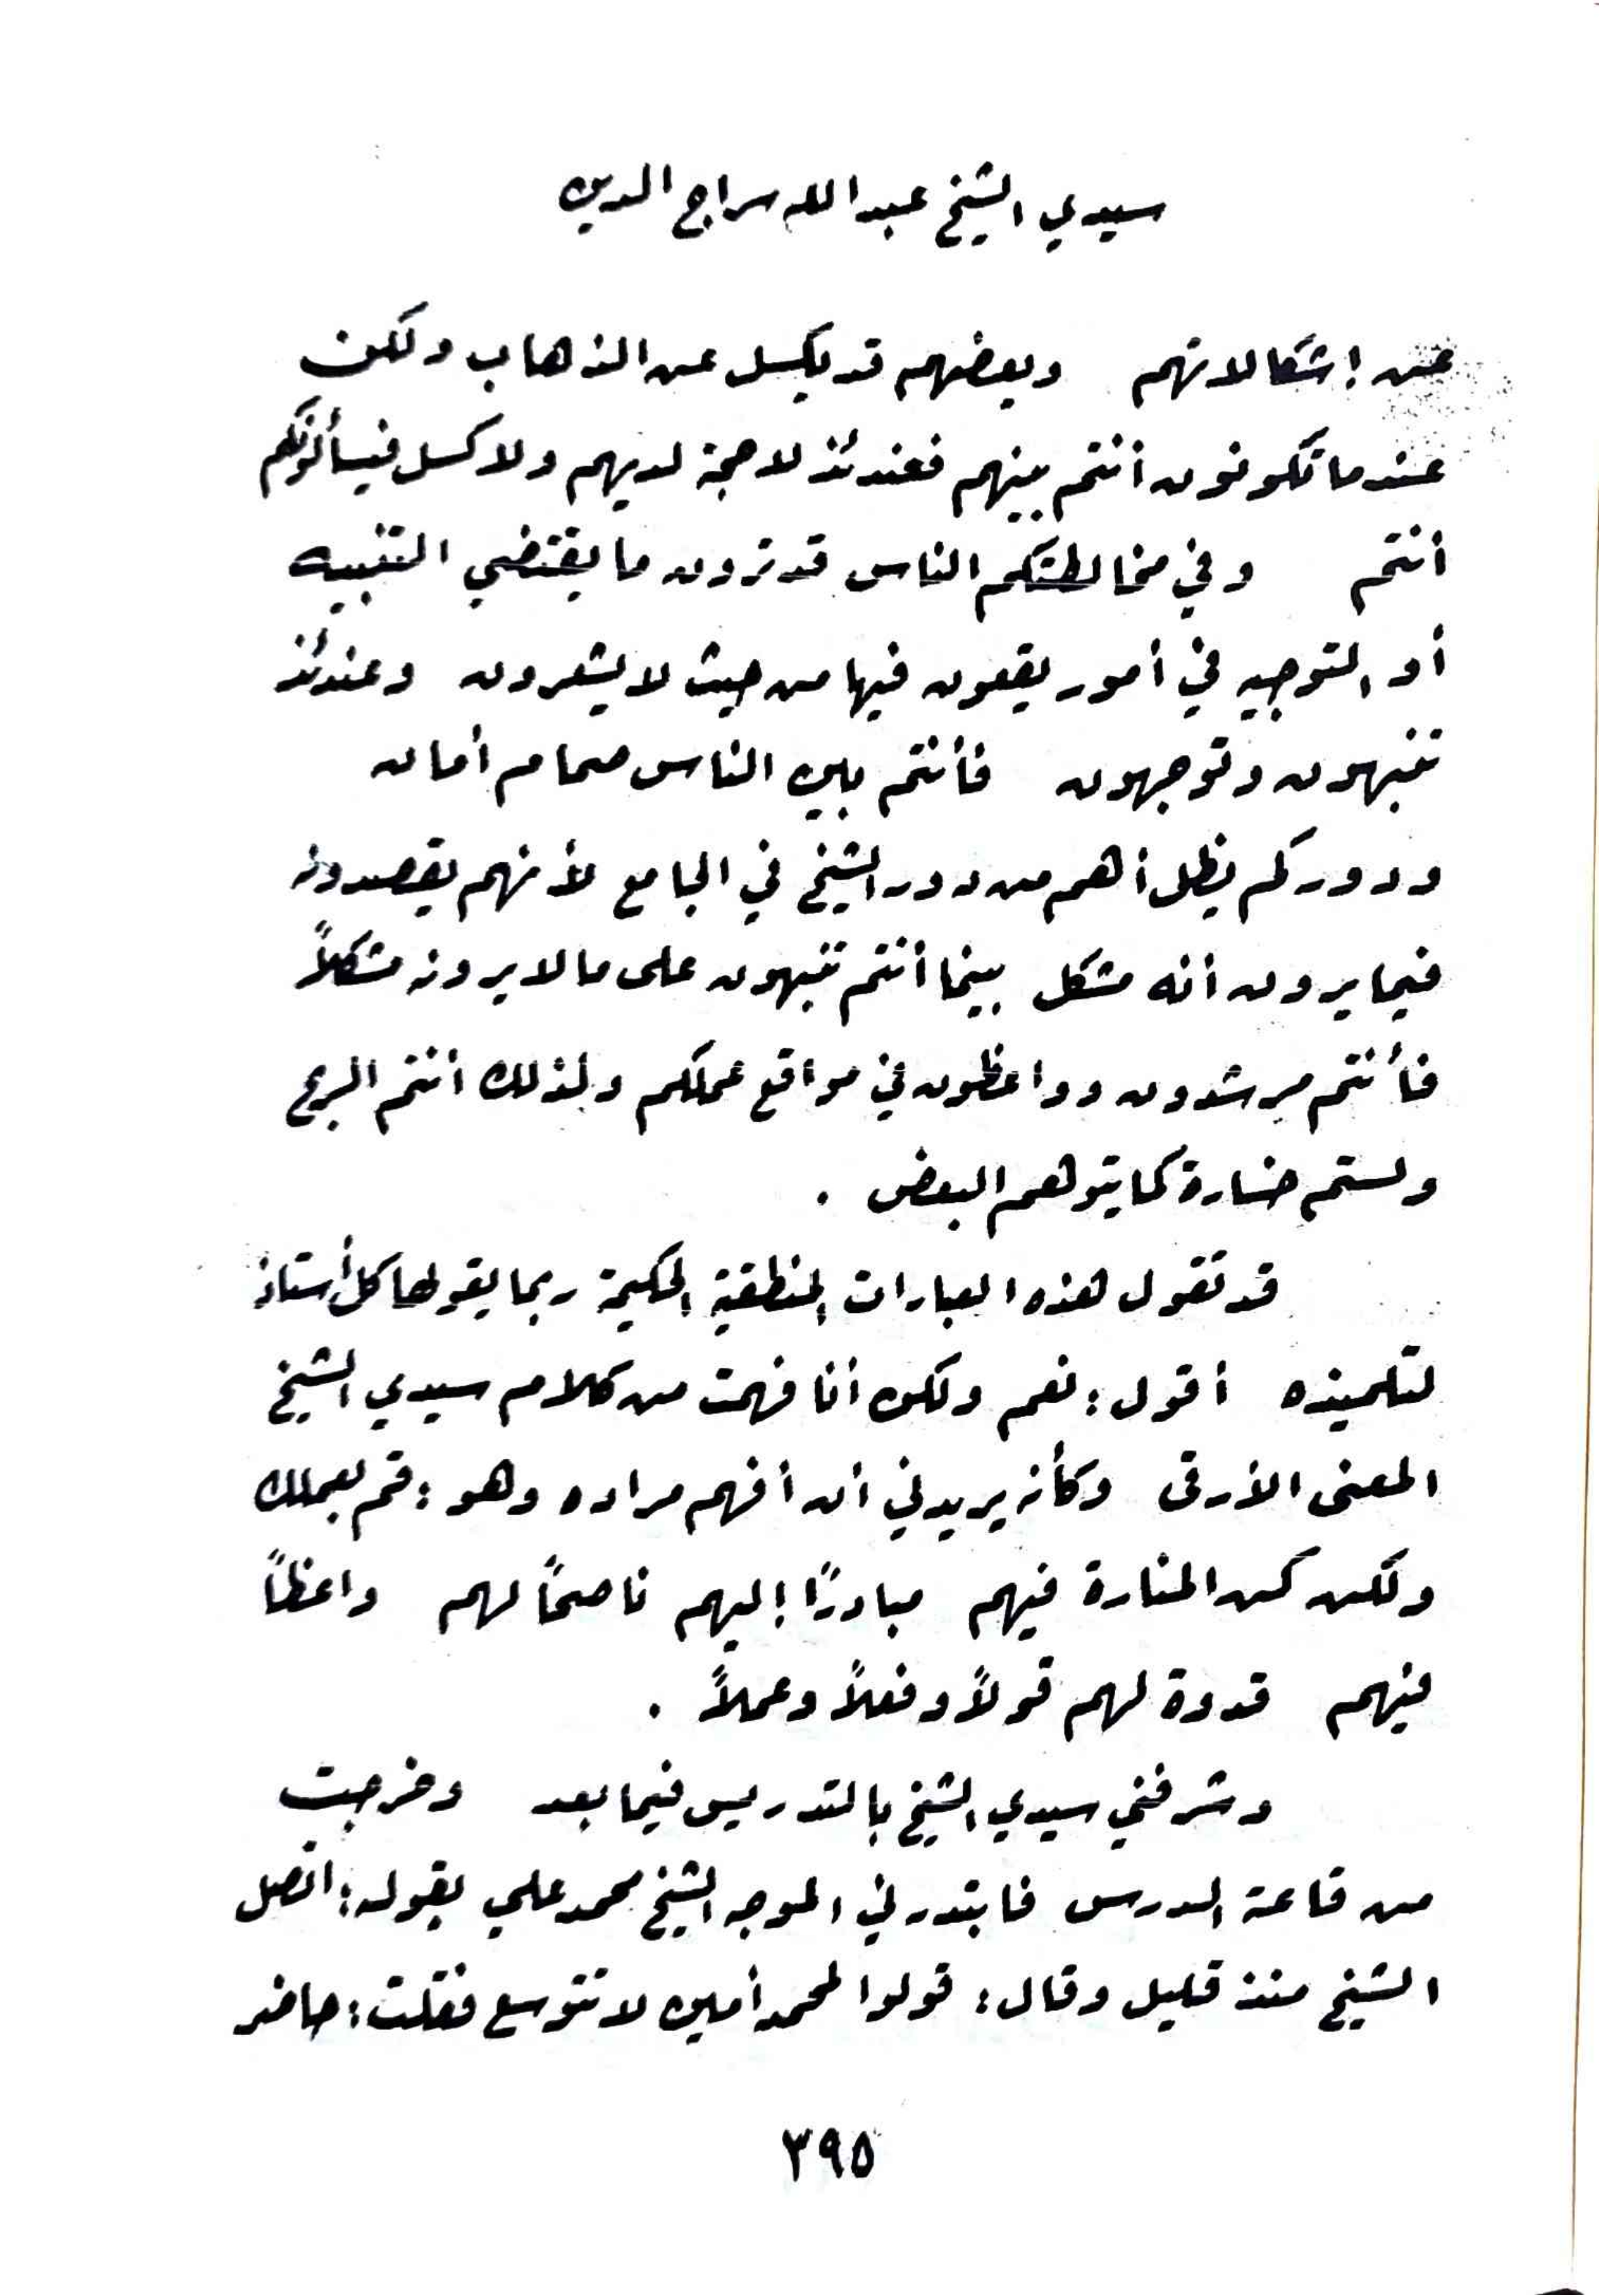 سيدي الشيخ عبد الله سراج الدين
عن إشكالاتهم وبعضهم قد يكسل عن الذهاب ولكن
عندما تكونون أنتم بينهم فعندئذ لا حجة لديهم ولا كسل فيسألونكم
أنتم وفي مخالطتكم الناس قد ترون ما يقتضي التنبيه
أو التوجيه في أمور يقعون فيها من حيث لا يشعرون وعندئذ
تنبهون وتوجهون فأنتم بين الناس صمام أمان
ودوركم يظل أهم من دور الشيخ في الجامع لأنهم يقصدونه
فيما يرون أنه مشكل بينما أنتم تنبهون على ما لا يرونه مشكلاً
فأنتم مرشدون وواعظون في مواقع عملكم ولذلك أنتم الربح
ولستم خسارة كما يتوهم البعض .
قد تقول هذه العبارات المنطقية الحكيمة ربما يقولها كل أستاذ
لتلميذه أقول : نعم ولكن أنا فهمت من كلام سيدي الشيخ
المعنى الأرقى وكأنه يريدني أن أفهم مراده وهو : قم بعملك
ولكن كن المنارة فيهم مبادرًا إليهم ناصحاً لهم واعظاً
فيهم قدوة لهم قولاً وفعلاً وعملاً .
وشرفني سيدي الشيخ بالتدريس فيما بعد وخرجت
من قاعة الدرس فابتدرني الموجه الشيخ محمد علي يقول : اتصل
الشيخ منذ قليل وقال : قولوا لمحمد أمين لا تتوسع فقلت : حاضر
٣٩٥